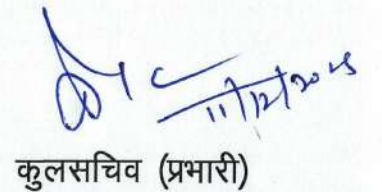 11/12/2025
कुलसचिव (प्रभारी)